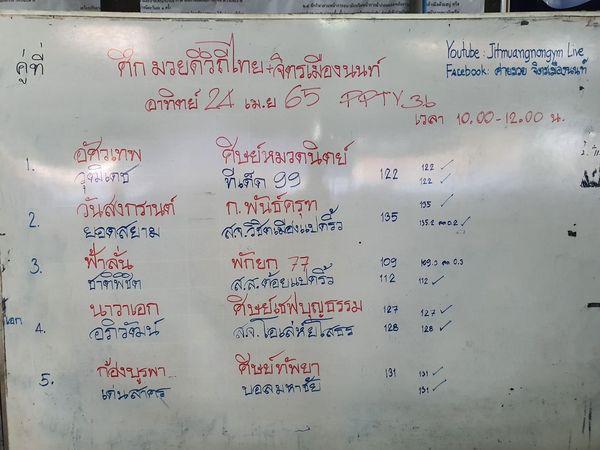 Youtube : Jitmuangnongym Live
คู่ที่ ศึก มวยดีวิถีไทย+จิตรเมืองนนท์
Facebook: ค่ายมวย จิตรเมืองนนท์
อาทิตย์ 24 เม.ย 65 PPTV 36
เวลา 10.00-12.00 น.
1. อัศวเทพ ศิษย์หมวดนิตย์ 122 ✓
วุฒิเดช ทีเด็ด 99 122 122 ✓
2. วันสงกรานต์ ก.พันธ์ครุฑ 135 ✓
ยอดสยาม ส.จ.วิชิตเมืองแปดริ้ว 135 135.2 ลด 0.2 ✓
3. ฟ้าลั่น พักยก 77 109 109.3 ลด 0.3
ชาติพิชิต ส.ส.ต้อยแปดริ้ว 112 112 ✓
นาวาเอก ศิษย์เชฟบุญธรรม 127 127 ✓
เอก 4. อภิวัฒน์ ส.จ.โอเล่ห์ยโสธร 128 128 ✓
5. ก้องบูรพา ศิษย์ทัพยา 131 131 ✓
เด่นสาคร บอลมหาชัย 131 ✓